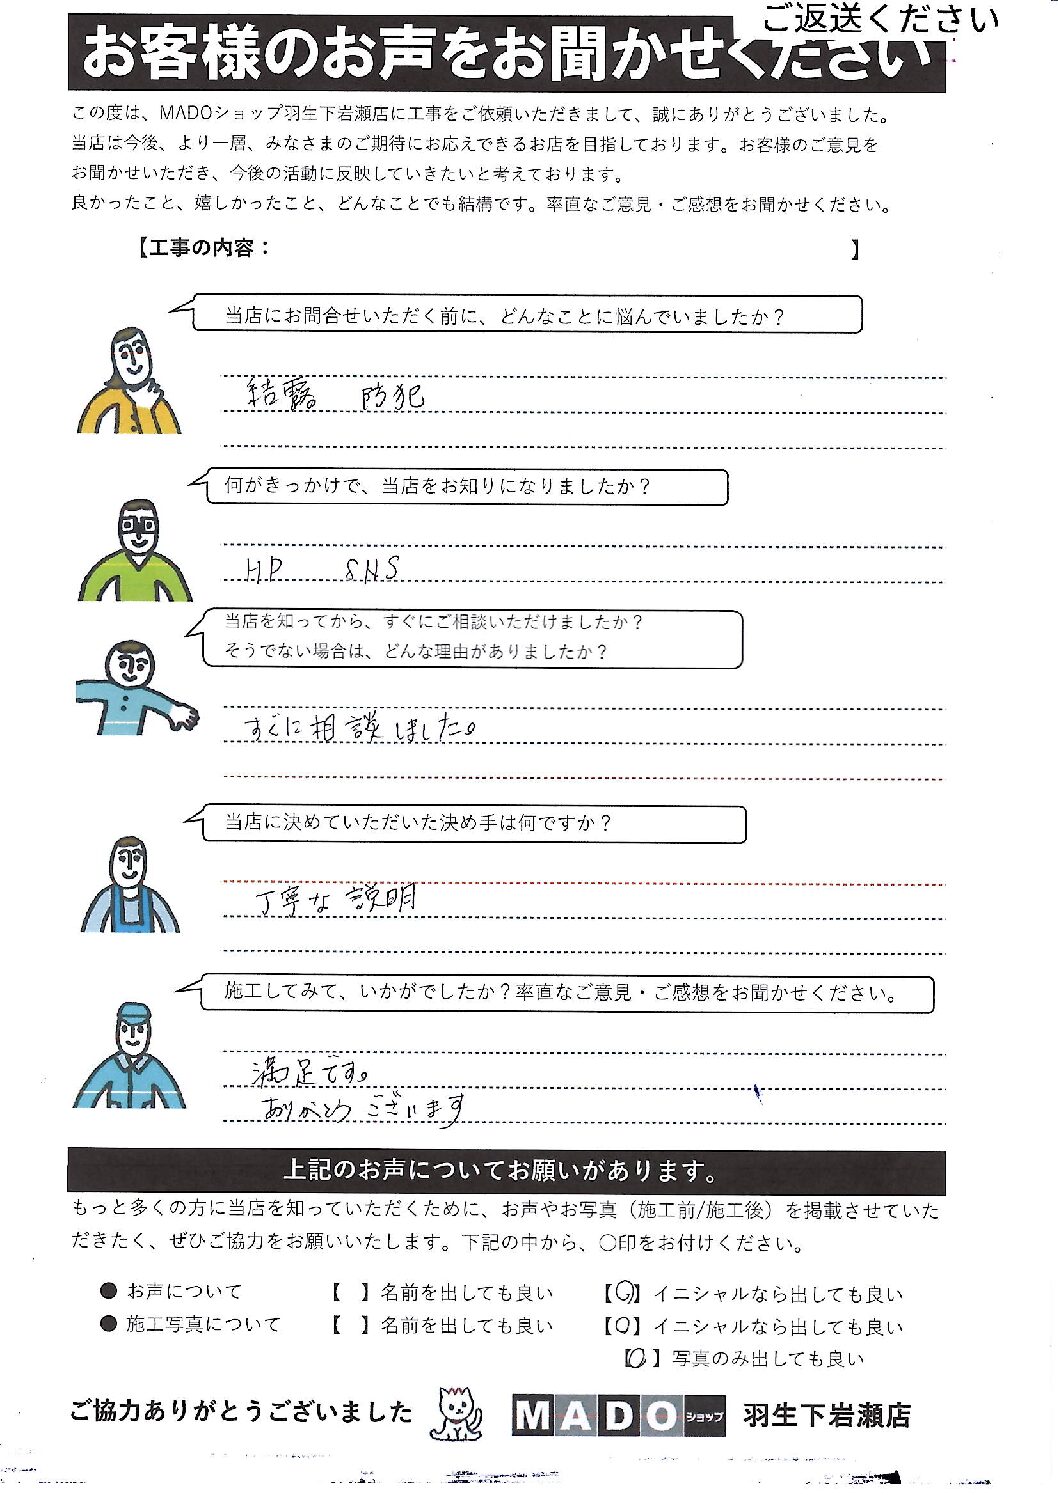 ご返送ください
お客様のお声をお聞かせください
この度は、MADOショップ羽生下岩瀬店に工事をご依頼いただきまして、誠にありがとうございました。
当店は今後、より一層、みなさまのご期待にお応えできるお店を目指しております。お客様のご意見を
お聞かせいただき、今後の活動に反映していきたいと考えております。
良かったこと、嬉しかったこと、どんなことでも結構です。率直なご意見・ご感想をお聞かせください。
【工事の内容： 】
当店にお問合せいただく前に、どんなことに悩んでいましたか？
結露 防犯
何がきっかけで、当店をお知りになりましたか？
HP SNS
当店を知ってから、すぐにご相談いただけましたか？
そうでない場合は、どんな理由がありましたか？
すぐに相談しました。
当店に決めていただいた決め手は何ですか？
丁寧な説明
施工してみて、いかがでしたか？率直なご意見・ご感想をお聞かせください。
満足です。
ありがとうございます
上記のお声についてお願いがあります。
もっと多くの方に当店を知っていただくために、お声やお写真（施工前/施工後）を掲載させていた
だきたく、ぜひご協力をお願いいたします。下記の中から、〇印をお付けください。
● お声について 【 】名前を出しても良い 【〇】イニシャルなら出しても良い
● 施工写真について 【 】名前を出しても良い 【〇】イニシャルなら出しても良い
【〇】写真のみ出しても良い
ご協力ありがとうございました MADOショップ 羽生下岩瀬店